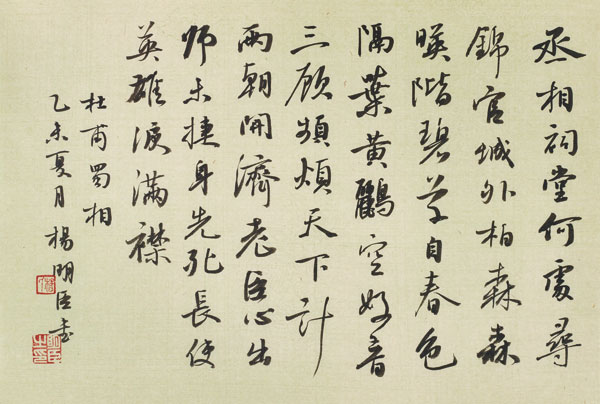 丞相祠堂何處尋
錦官城外柏森森
暎階碧草自春色
隔葉黄鸝空好音
三顧頻煩天下計
兩朝開濟老臣心出
師未捷身先死長使
英雄淚滿襟
杜甫蜀相
乙未夏月楊明臣書